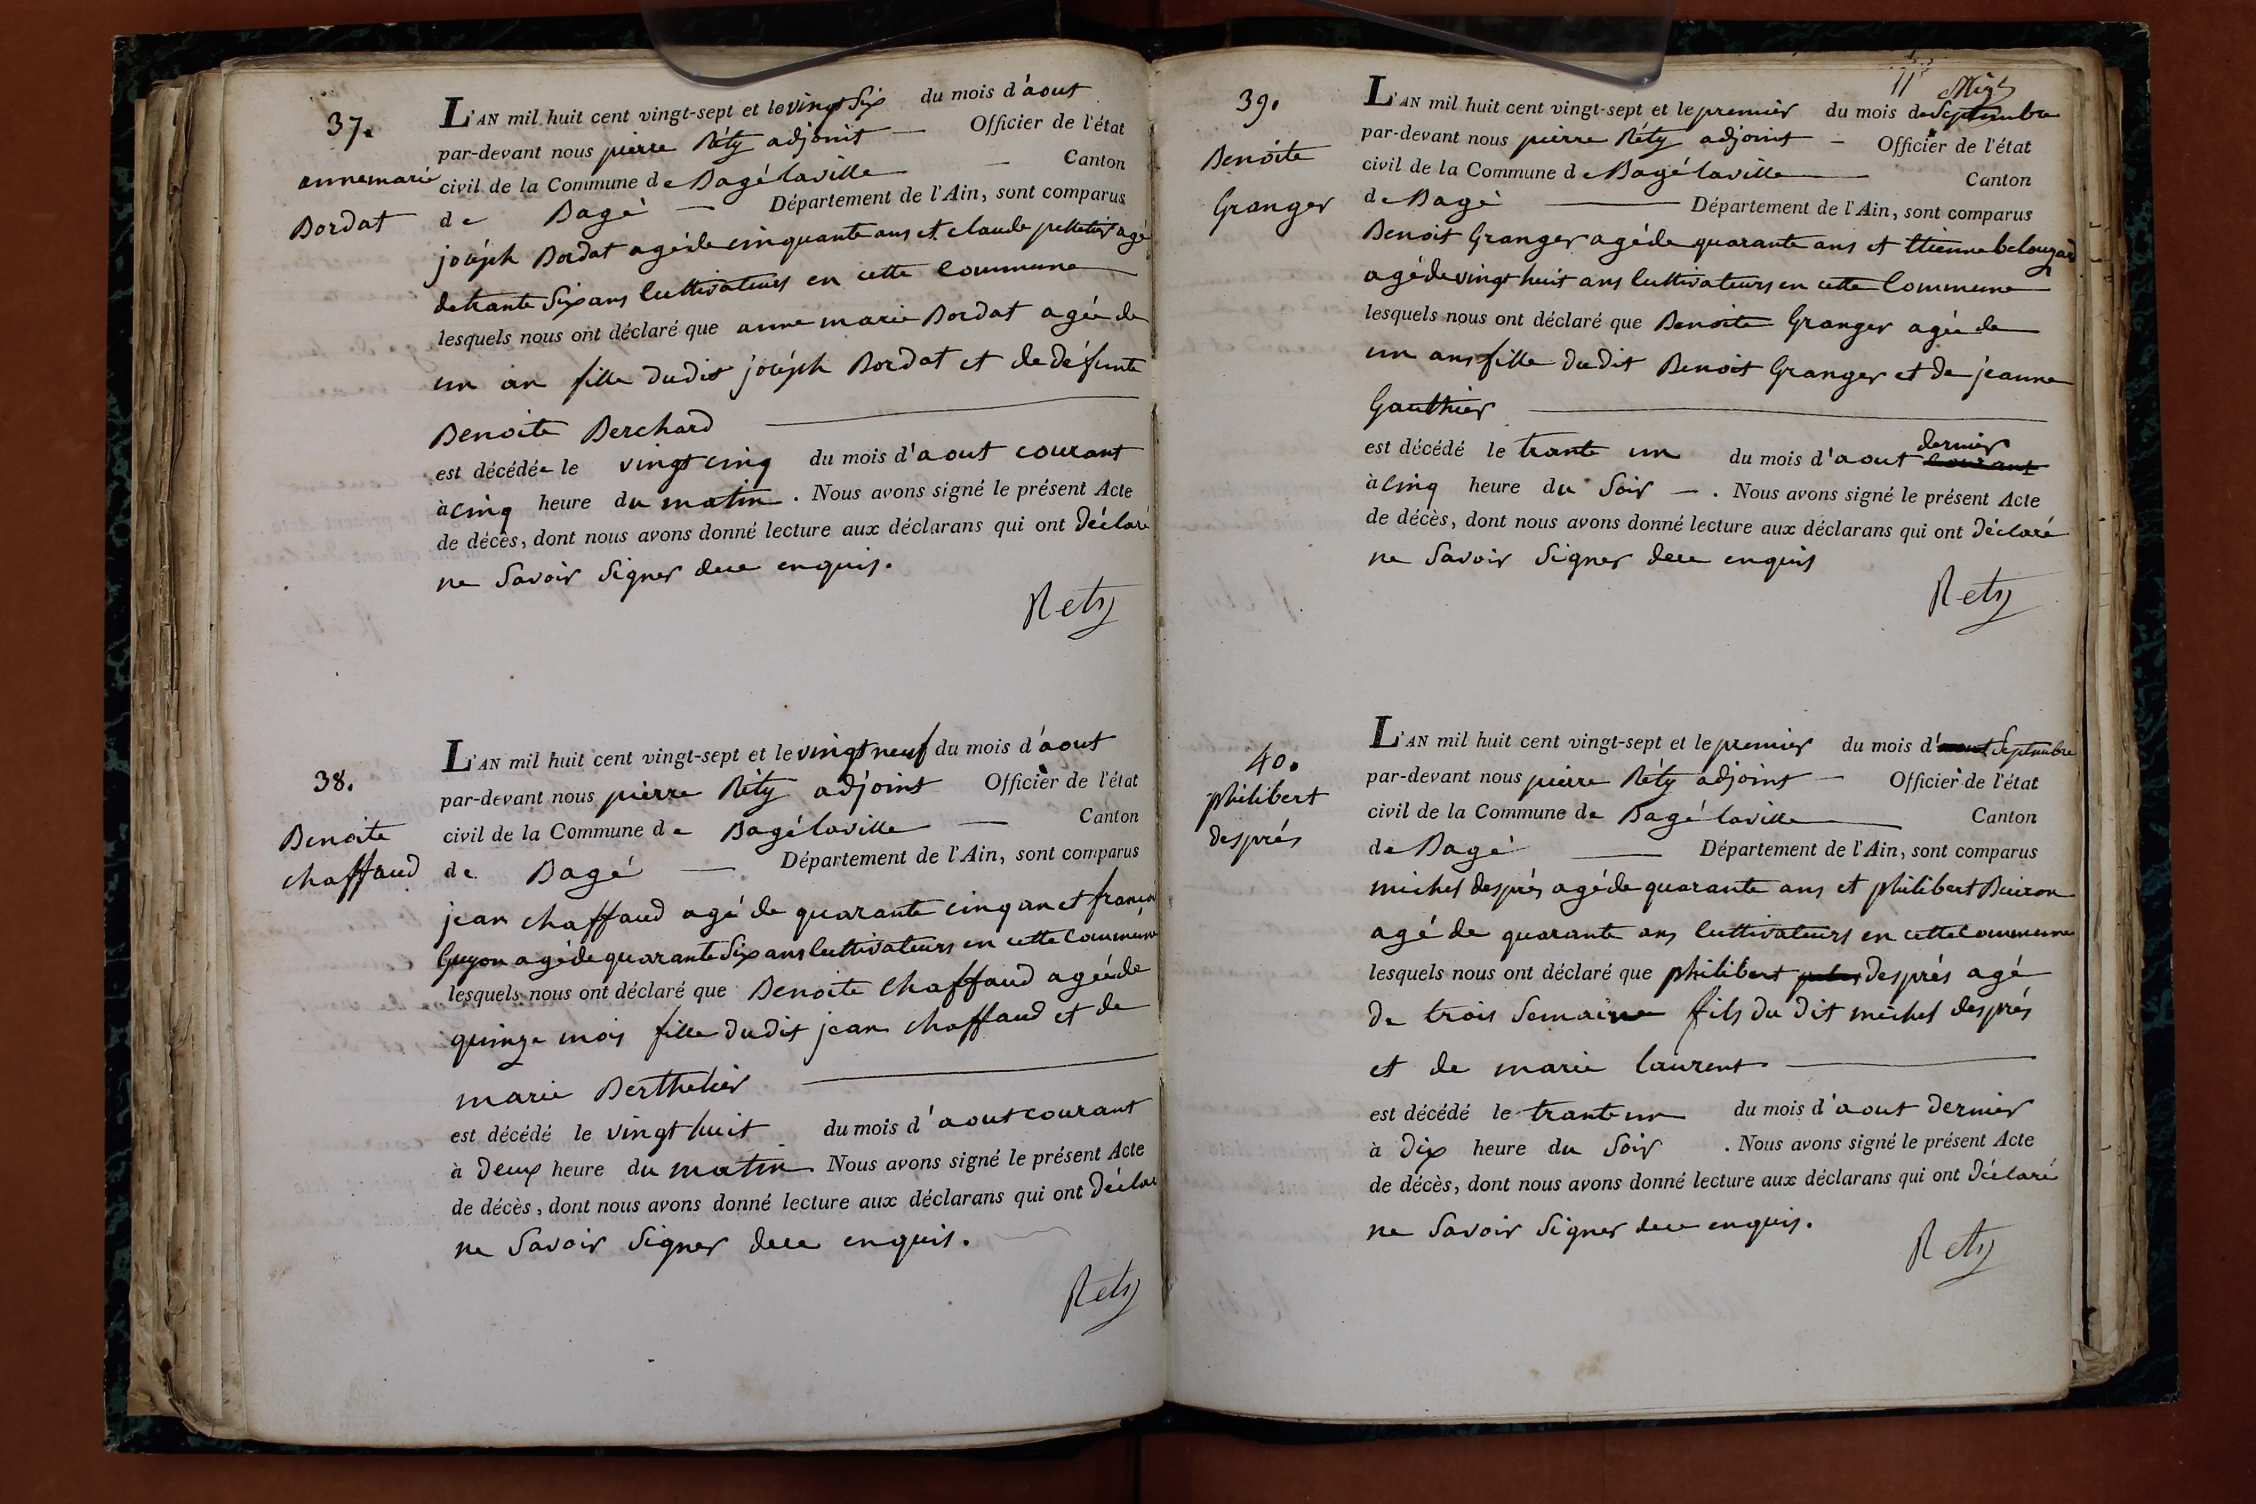 37.
annemarie
Bordat
L'AN mil huit cent vingt-sept et le vingt Six du mois d'aout
par-devant nous pierre Réty adjoint — Officier de l'état
civil de la Commune de Bagé laville — Canton
de Bagé — Département de l'Ain, sont comparus
joséph Bordat agé de cinquante ans et claude pelletier agé
de trante Six ans Cultivateurs en cette Commune
lesquels nous ont déclaré que anne marie Bordat agée de
un an fille dudit joséph Bordat et de défunte
Benoite Berchard
est décédée le vingt cinq du mois d'aout courant
à cinq heure du matin. Nous avons signé le présent Acte
de décès, dont nous avons donné lecture aux déclarans qui ont déclaré
ne Savoir Signer de ce enquis.
Rety
38.
Benoite
chaffaud
L'AN mil huit cent vingt-sept et le vingt neuf du mois d'aout
par-devant nous pierre Réty adjoint Officier de l'état
civil de la Commune de Bagé laville — Canton
de Bagé — Département de l'Ain, sont comparus
jean chaffaud agé de quarante cinq an et françois
Guyon agé de quarante Six ans Cultivateurs en cette Commune
lesquels nous ont déclaré que Benoite Chaffaud agée de
quinze mois fille dudit jean chaffaud et de
marie Berthelier
est décédé le vingt huit du mois d'aout courant
à deux heure du matin Nous avons signé le présent Acte
de décès, dont nous avons donné lecture aux déclarans qui ont déclaré
ne Savoir Signer de ce enquis.
Rety
11
39.
Benoite
Granger
L'AN mil huit cent vingt-sept et le premier du mois de Septembre
par-devant nous pierre Réty adjoint — Officier de l'état
civil de la Commune de Bagé laville — Canton
de Bagé — Département de l'Ain, sont comparus
Benoit Granger agé de quarante ans et Etienne belouzard
agé de vingt huit ans Cultivateurs en cette Commune
lesquels nous ont déclaré que Benoite Granger agée de
un ans fille dudit Benoit Granger et de jeanne
Gauthier
dernier
est décédé le trante un du mois d'aout courant
à cinq heure du Soir — . Nous avons signé le présent Acte
de décès, dont nous avons donné lecture aux déclarans qui ont déclaré
ne Savoir Signer de ce enquis
Rety
40.
philibert
després
L'AN mil huit cent vingt-sept et le premier du mois d'aout Septembre
par-devant nous pierre Réty adjoint — Officier de l'état
civil de la Commune de Bagé laville — Canton
de Bagé — Département de l'Ain, sont comparus
michel després agé de quarante ans et philibert Buiron
agé de quarante ans Cultivateurs en cette Commune
lesquels nous ont déclaré que philibert després agé
de trois Semaine fils du dit michel després
et de marie laurent
est décédé le trante un du mois d'aout dernier
à dix heure du Soir . Nous avons signé le présent Acte
de décès, dont nous avons donné lecture aux déclarans qui ont déclaré
ne Savoir Signer de ce enquis.
Rety